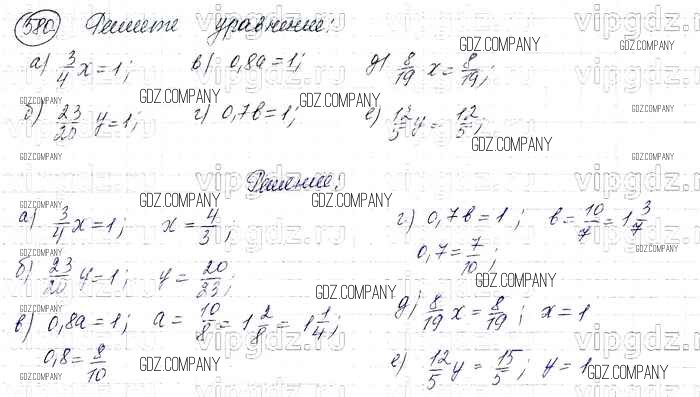 580. Решите уравнение:
а) 3/4 x = 1; в) 0,8a = 1; д) 8/19 x = 8/19;
б) 23/20 y = 1; г) 0,7b = 1; е) 12/5 y = 12/5;
Решение:
а) 3/4 x = 1; x = 4/3;
б) 23/20 y = 1; y = 20/23;
в) 0,8a = 1; a = 10/8 = 1 2/8 = 1 1/4;
0,8 = 8/10
г) 0,7b = 1; b = 10/7 = 1 3/7
0,7 = 7/10;
д) 8/19 x = 8/19; x = 1
е) 12/5 y = 15/5; y = 1
GDZ.COMPANY
vipgdz.ru